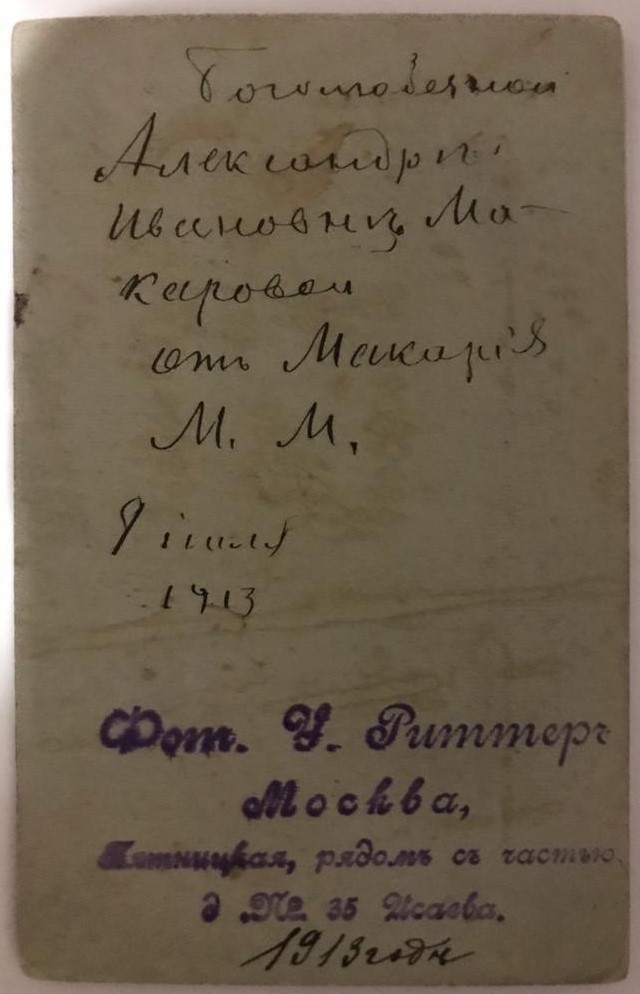 Боголюбезной
Александрѣ
Ивановнѣ Ма-
каровой
отъ Макарія
М. М.
9 іюля
1913
Фот. У. Риттеръ
Москва,
Пятницкая, рядомъ съ частью,
д № 35 Исаева.
1913 годъ